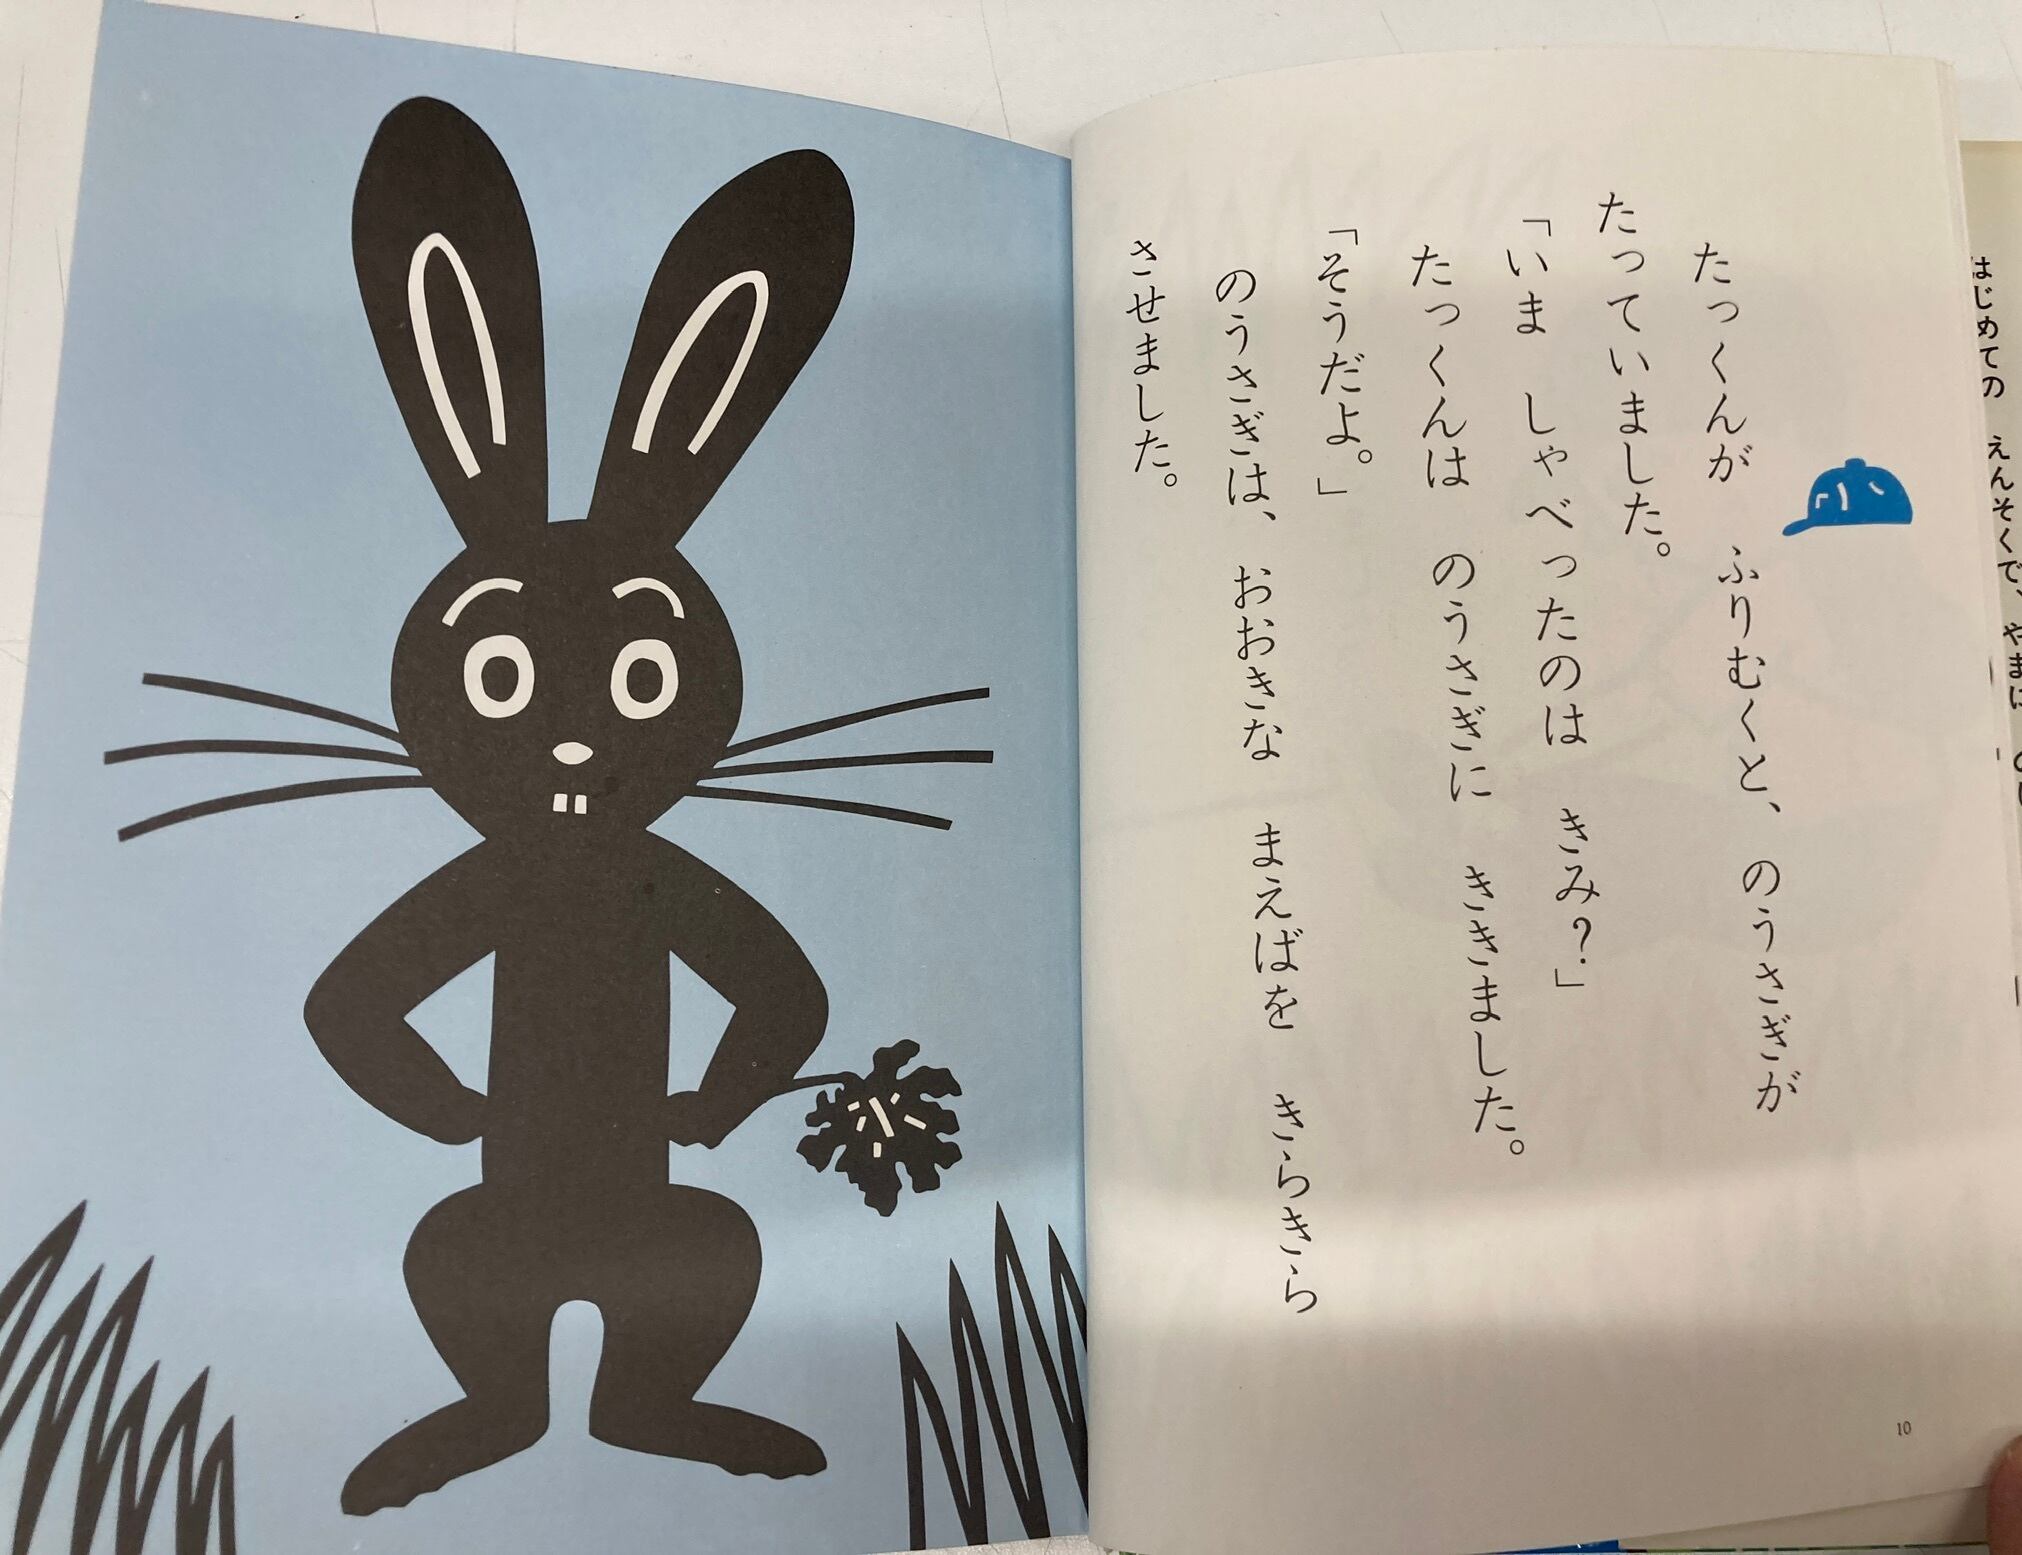 たっくんが　ふりむくと、のうさぎが
たっていました。
「いま　しゃべったのは　きみ？」
たっくんは　のうさぎに　ききました。
「そうだよ。」
のうさぎは、おおきな　まえばを　きらきら
させました。
10
はじめての　えんそくで、やまに